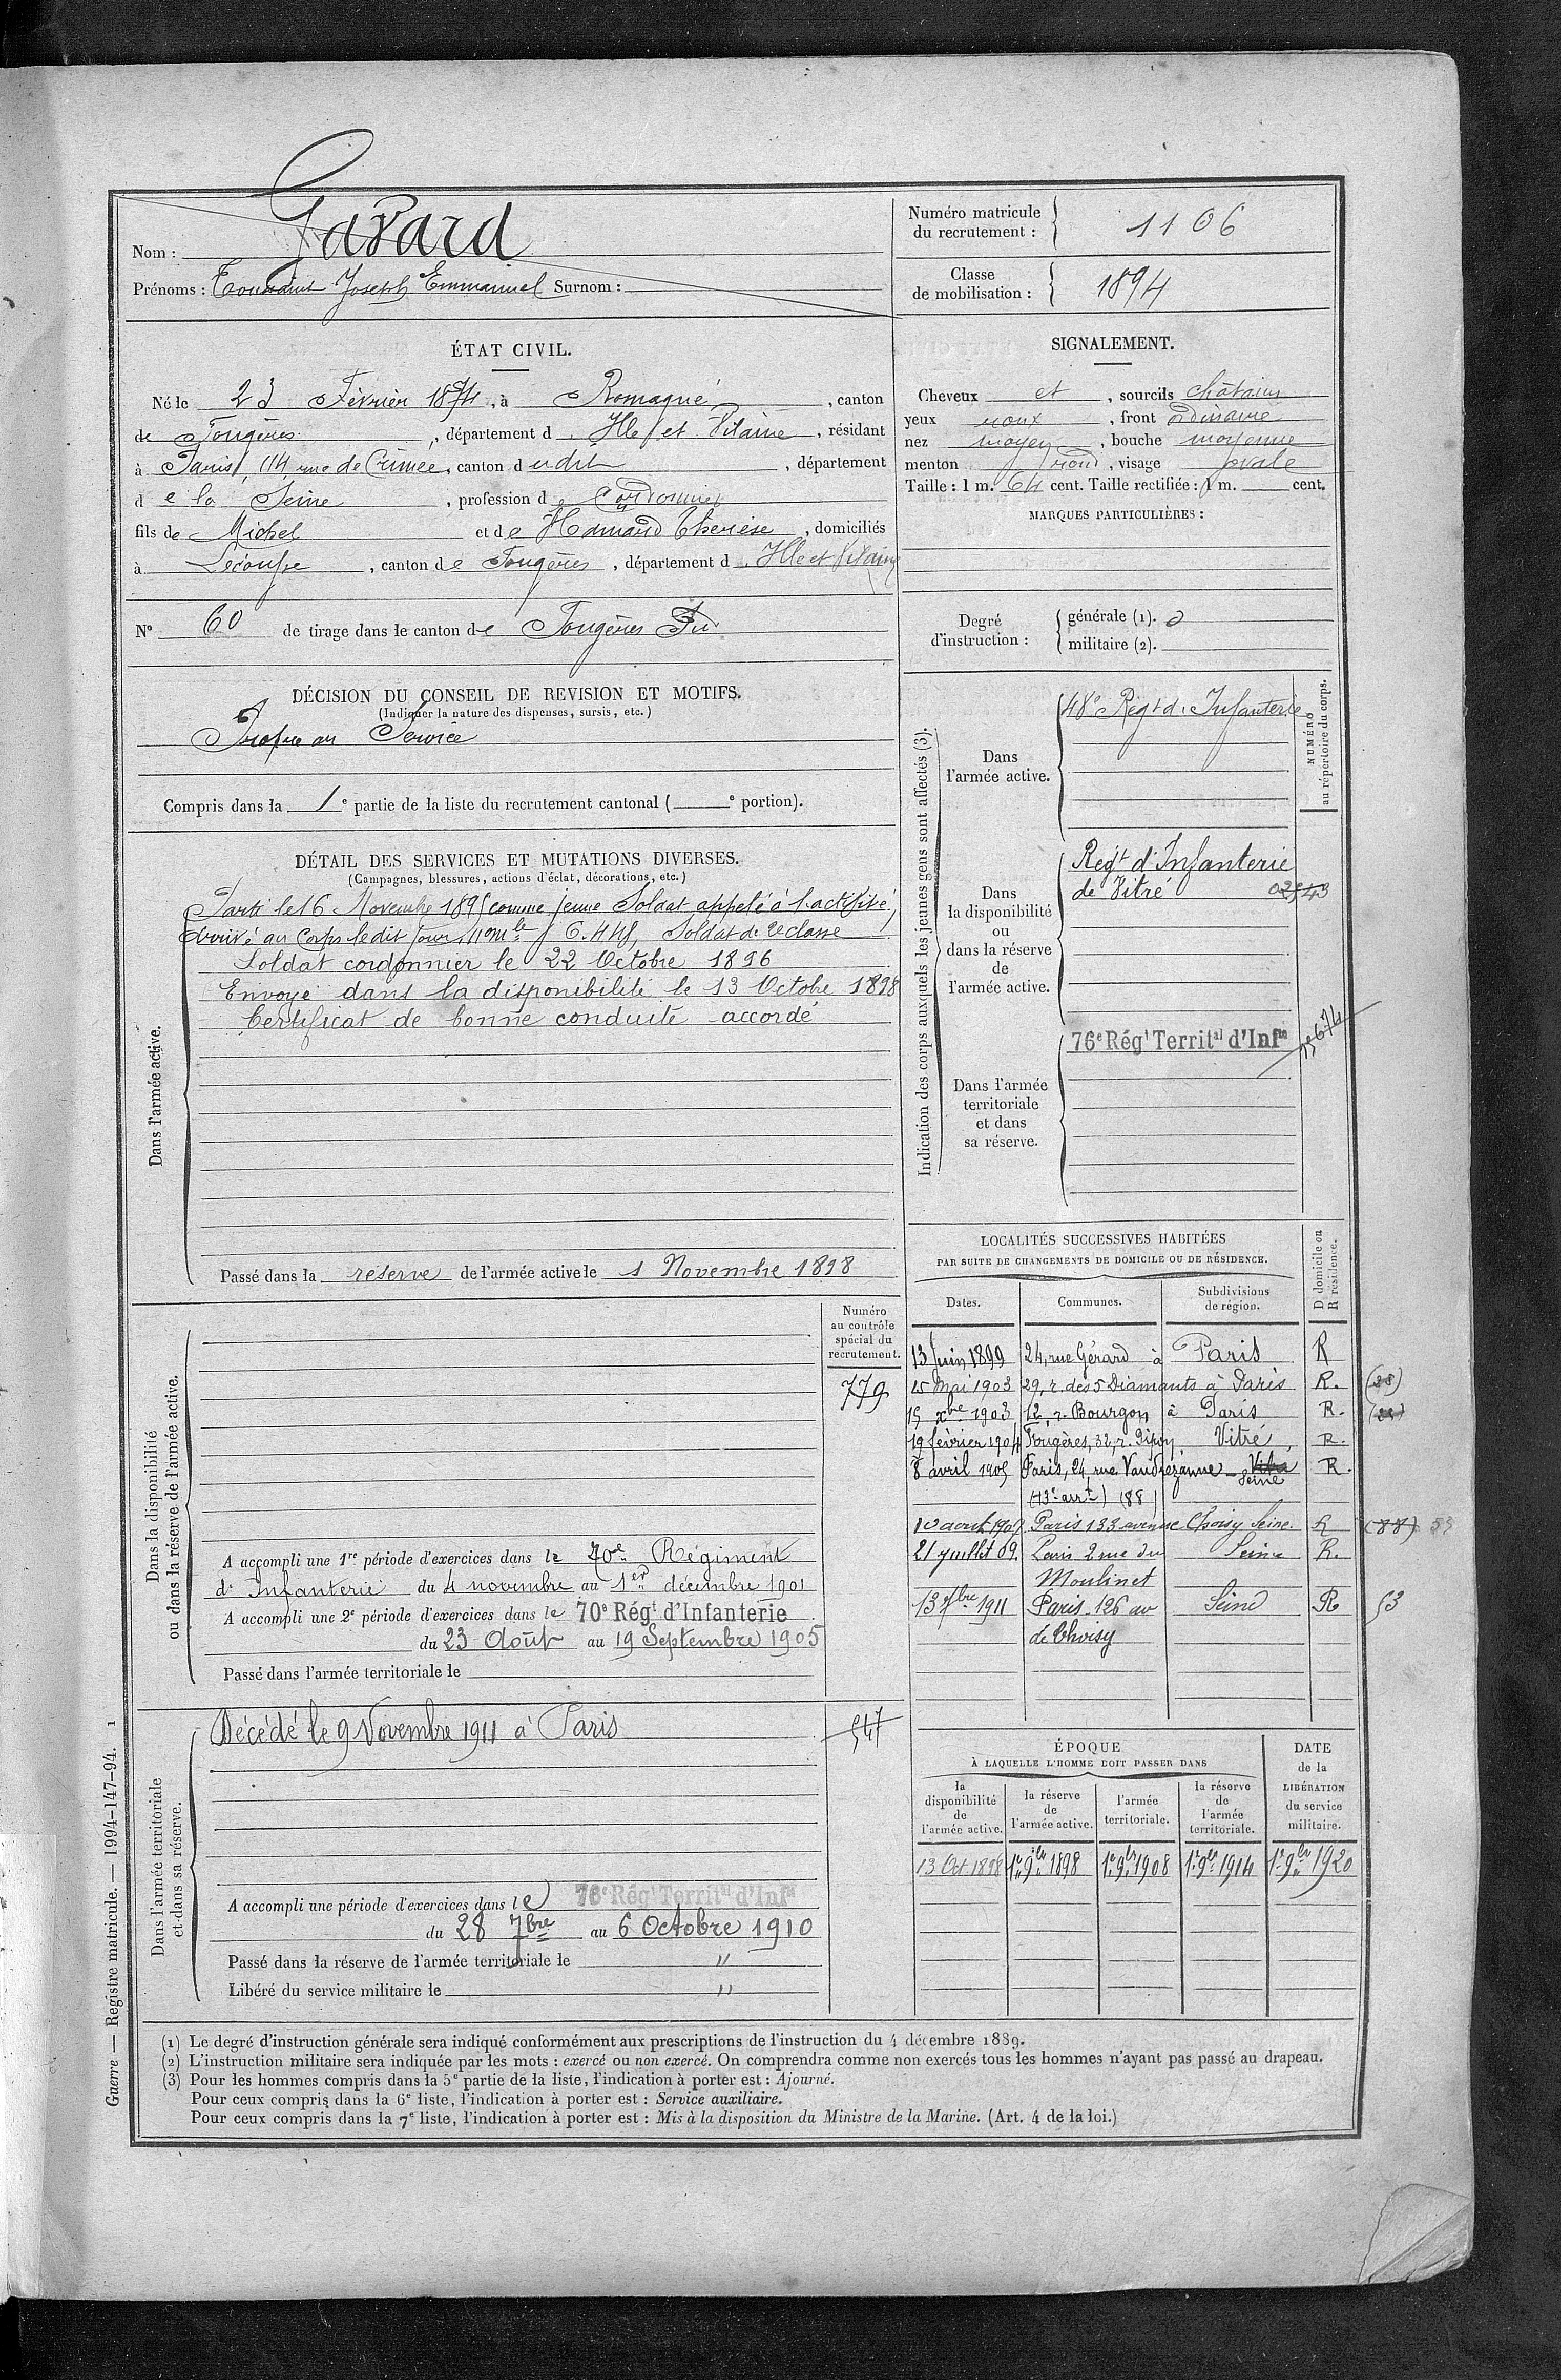 Nom : Gavard
Prénoms : Toussaint Joseph Emmanuel Surnom :
Numéro matricule
du recrutement : 1106
Classe
de mobilisation : 1894
ÉTAT CIVIL.
Né le 23 Février 1874, à Romagné, canton
de Fougères, département d. Ille et Vilaine, résidant
à Paris, 114 rue de Crimée, canton d udit, département
d e la Seine, profession de Cordonnier
fils de Michel et de Hamard Thérèse, domiciliés
à Lécousse, canton de Fougères, département d. Ille et Vilaine
N° 60 de tirage dans le canton de Fougères Sud
SIGNALEMENT.
Cheveux et, sourcils châtains
yeux roux, front ordinaire
nez moyen, bouche moyenne
menton rond, visage ovale
Taille : 1 m. 64 cent. Taille rectifiée : 1 m. cent.
MARQUES PARTICULIÈRES :
Degré
d'instruction :
générale (1). 0
militaire (2).
DÉCISION DU CONSEIL DE REVISION ET MOTIFS.
(Indiquer la nature des dispenses, sursis, etc.)
Propre au Service
Compris dans la 1e partie de la liste du recrutement cantonal ( e portion).
DÉTAIL DES SERVICES ET MUTATIONS DIVERSES.
(Campagnes, blessures, actions d'éclat, décorations, etc.)
Dans l'armée active.
Parti le 16 Novembre 1895 comme jeune Soldat appelé à l'activité,
Arrivé au Corps le dit jour, nom le Soldat de 2e classe
Soldat cordonnier le 22 Octobre 1896
Envoyé dans la disponibilité le 13 Octobre 1898
Certificat de bonne conduite accordé
Passé dans la réserve de l'armée active le 1 Novembre 1898
Indication des corps auxquels les jeunes gens sont affectés (3).
NUMÉRO
au répertoire du corps.
Dans
l'armée active.
48e Régt d. Infanterie
Dans
la disponibilité
ou
dans la réserve
de
l'armée active.
Régt d'Infanterie
de Vitré 02543
Dans l'armée
territoriale
et dans
sa réserve.
76e Régt Territal d'Infie
LOCALITÉS SUCCESSIVES HABITÉES
PAR SUITE DE CHANGEMENTS DE DOMICILE OU DE RÉSIDENCE.
D domicile ou
R résidence.
Dates. Communes. Subdivisions
de région.
13 Juin 1899 24, rue Gérard à Paris R
25 Mai 1903 29, r. des 5 Diamants à Paris R.
15 xbre 1903 12, r. Bourgon à Paris R.
19 février 1904 Fougères, 32, r. Vitré R.
8 avril 1905 Paris, 24, rue Vandrezanne - Vitré R.
Seine
(13e arrt) (88)
10 août 1907 Paris 133 avenue Choisy Seine R (88) 53
21 juillet 09. Paris 2 rue du Seine R.
Moulinet
13 7bre 1911 Paris 126 av Seine R 53
de Choisy
Dans la disponibilité
ou dans la réserve de l'armée active.
Numéro
au contrôle
spécial du
recrutement.
779
A accompli une 1re période d'exercices dans le 70e Régiment
d'Infanterie du 4 novembre au 1er décembre 1901
A accompli une 2e période d'exercices dans le 70e Régt d'Infanterie
du 23 Août au 19 Septembre 1905
Passé dans l'armée territoriale le
Dans l'armée territoriale
et dans sa réserve.
Décédé le 9 Novembre 1911 à Paris 547
A accompli une période d'exercices dans le 76e Régt Territal d'Infie
du 28 7bre au 6 Octobre 1910
Passé dans la réserve de l'armée territoriale le "
Libéré du service militaire le "
ÉPOQUE
À LAQUELLE L'HOMME DOIT PASSER DANS
DATE
de la
LIBÉRATION
du service
militaire.
la
disponibilité
de
l'armée active.
la réserve
de
l'armée active.
l'armée
territoriale.
la réserve
de
l'armée
territoriale.
13 Oct. 1898 1er 9bre 1898 1er 9bre 1908 1er 9bre 1914 1er 9bre 1920
(1) Le degré d'instruction générale sera indiqué conformément aux prescriptions de l'instruction du 4 décembre 1889.
(2) L'instruction militaire sera indiquée par les mots : exercé ou non exercé. On comprendra comme non exercés tous les hommes n'ayant pas passé au drapeau.
(3) Pour les hommes compris dans la 5e partie de la liste, l'indication à porter est : Ajourné.
Pour ceux compris dans la 6e liste, l'indication à porter est : Service auxiliaire.
Pour ceux compris dans la 7e liste, l'indication à porter est : Mis à la disposition du Ministre de la Marine. (Art. 4 de la loi.)
Guerre — Registre matricule. — 1994-147-94. 1